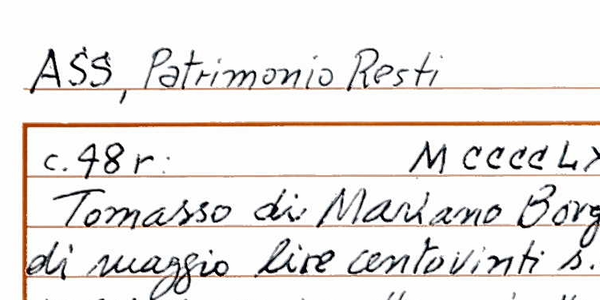 ASS, Patrimonio Resti
c. 48 r: M CCCC LX
Tomasso di Mariano Borg
di maggio lire centovinti s.